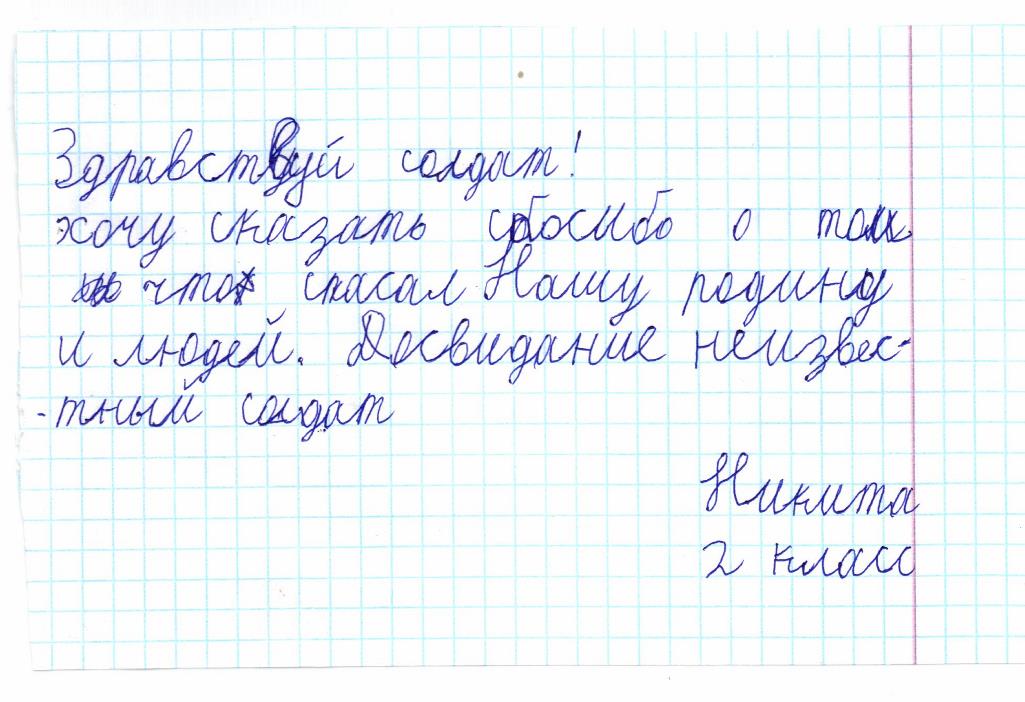 Здравствуй солдат!
хочу сказать сбосибо о том
что спасал Нашу родину
и людей. Досвидание неизвес-
-тный солдат
Никита
2 класс